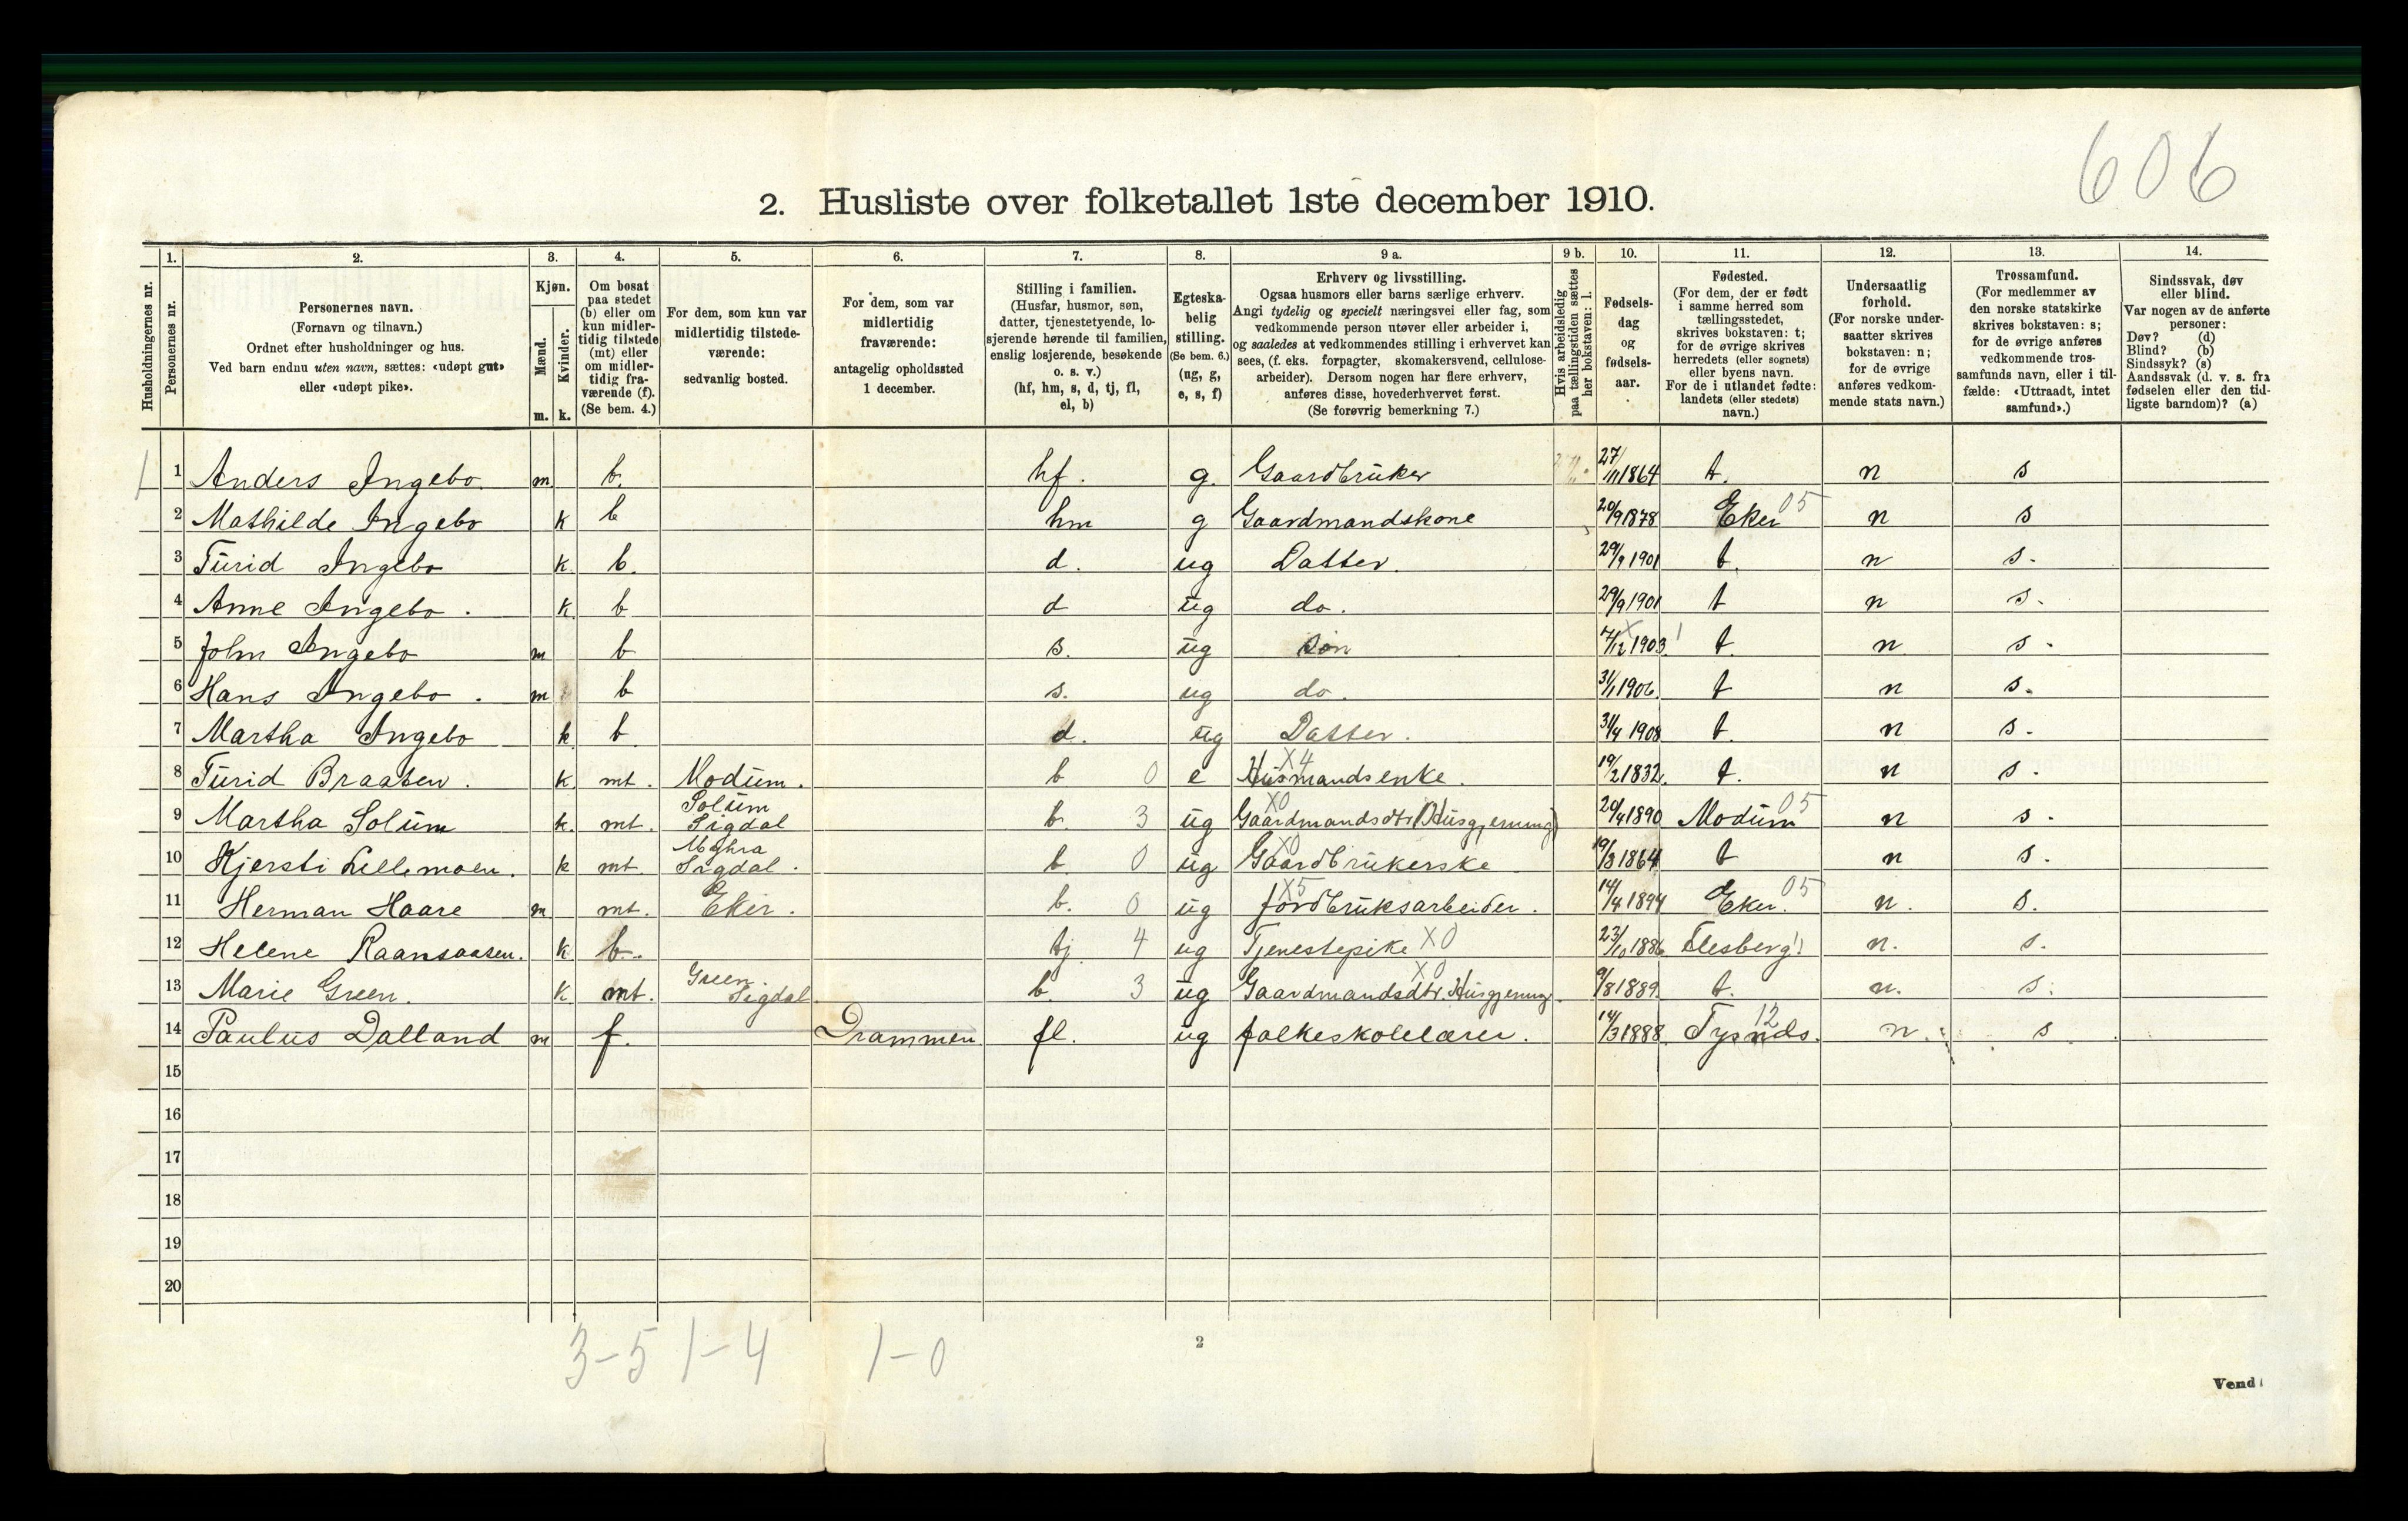 606
2. Husliste over folketallet 1ste december 1910.
Husholdningernes nr.
1. Personernes nr.
2. Personernes navn.
(Fornavn og tilnavn.)
Ordnet efter husholdninger og hus.
Ved barn endnu uten navn, sættes: «udøpt gut»
eller «udøpt pike».
3. Kjøn.
Mænd. m.
Kvinder. k.
4. Om bosat
paa stedet
(b) eller om
kun midler-
tidig tilstede
(mt) eller
om midler-
tidig fra-
værende (f).
(Se bem. 4.)
5. For dem, som kun var
midlertidig tilstede-
værende:
sedvanlig bosted.
6. For dem, som var
midlertidig
fraværende:
antagelig opholdssted
1 december.
7. Stilling i familien.
(Husfar, husmor, søn,
datter, tjenestetyende, lo-
sjerende hørende til familien,
enslig losjerende, besøkende
o. s. v.)
(hf, hm, s, d, tj, fl,
el, b)
8. Egteska-
belig
stilling.
(Se bem. 6.)
(ug, g,
e, s, f)
9 a. Erhverv og livsstilling.
Ogsaa husmors eller barns særlige erhverv.
Angi tydelig og specielt næringsvei eller fag, som
vedkommende person utøver eller arbeider i,
og saaledes at vedkommendes stilling i erhvervet kan
sees, (f. eks. forpagter, skomakersvend, cellulose-
arbeider). Dersom nogen har flere erhverv,
anføres disse, hovederhvervet først.
(Se forøvrig bemerkning 7.)
9 b. Hvis arbeidsledig
paa tællingstiden sættes
her bokstaven: l.
10. Fødsels-
dag
og
fødsels-
aar.
11. Fødested.
(For dem, der er født
i samme herred som
tællingsstedet,
skrives bokstaven: t;
for de øvrige skrives
herredets (eller sognets)
eller byens navn.
For de i utlandet fødte:
landets (eller stedets)
navn.)
12. Undersaatlig
forhold.
(For norske under-
saatter skrives
bokstaven: n;
for de øvrige
anføres vedkom-
mende stats navn.)
13. Trossamfund.
(For medlemmer av
den norske statskirke
skrives bokstaven: s;
for de øvrige anføres
vedkommende tros-
samfunds navn, eller i til-
fælde: «Uttraadt, intet
samfund».)
14. Sindssvak, døv
eller blind.
Var nogen av de anførte
personer:
Døv? (d)
Blind? (b)
Sindssyk? (s)
Aandssvak (d. v. s. fra
fødselen eller den tid-
ligste barndom)? (a)
1 1 Anders Ingebo. m b. hf. g. Gaardbruker 27/11 1864 t. n s
2 Mathilde Ingebo k b hm g Gaardmandskone 20/9 1878 Eker 05 n s
3 Turid Ingebo k. b. d. ug Datter. 29/9 1901 t. n s.
4 Anne Ingebo. k b d ug do. 29/9 1901 t n s.
5 John Ingebo m b s. ug Søn 7/12 1903 t. n s.
6 Hans Ingebo. m b s. ug do. 31/1 1906. t n s.
7 Martha Ingebo k b d. ug Datter. 1908 t. n s.
8 Turid Braaten. k. mt. Modum. b 0 e Husmandsenke. X4 19/2 1832. t. n s.
9 Martha Solum k. mt. Solum Sigdal b. 3 ug Gaardmandsdtr. (Husgjerning) X0 20/4 1890 Modum 05 n s.
10 Kjersti Lillemoen. k mt. Sigdal. b. 0 ug Gaardbrukerske X0 19/3 1864 t n s.
11 Herman Haare m mt. Eker. b. 0 ug Jordbruksarbeider. X5 14/4 1894 Eker. 05 n. s.
12 Helene Raansaasen. k b. tj 4 ug Tjenestepike X0 23/10 1886 Flesberg n. s.
13 Marie Green. k mt. Green. Sigdal. b. 3 ug Gaardmandsdtr. Husgjerning. X0 9/8 1889. t. n. s.
14 Paulus Dalland m f. Drammen fl. ug folkeskolelærer. 14/3 1888. Tysnes. 12 n. s
15
16
17
18
19
20
3-5 1-4 1-0
2
Vend!